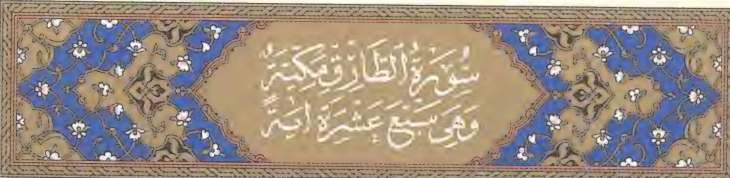 سُورَةُ الطَّارِقِ مَكِّيَّةٌ
وَهِيَ سَبْعَ عَشْرَةَ اٰيَةً